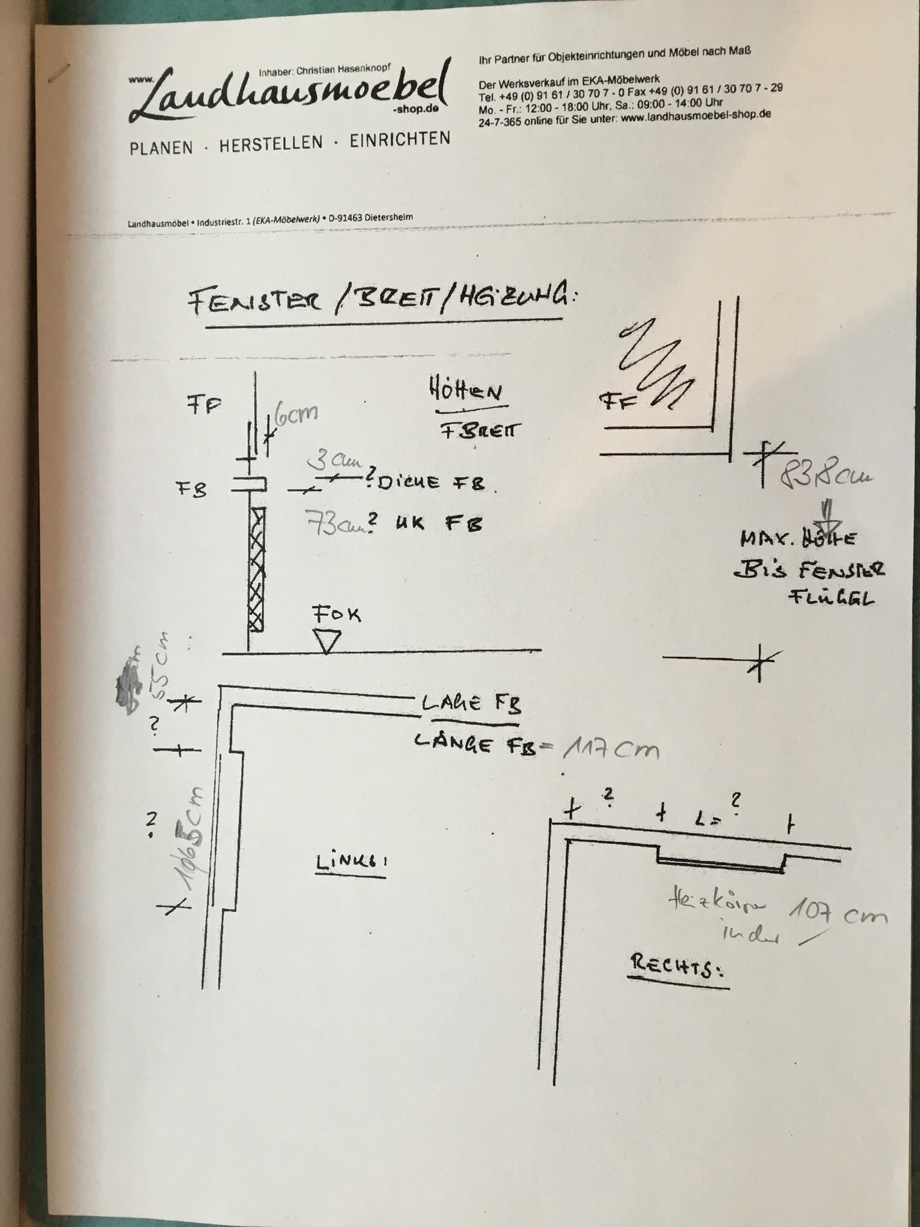 www.
Inhaber: Christian Hasenknopf
Landhausmoebel
-shop.de
PLANEN · HERSTELLEN · EINRICHTEN
Ihr Partner für Objekteinrichtungen und Möbel nach Maß
Der Werksverkauf im EKA-Möbelwerk
Tel. +49 (0) 91 61 / 30 70 7 - 0 Fax +49 (0) 91 61 / 30 70 7 - 29
Mo. - Fr.: 12:00 - 18:00 Uhr, Sa.: 09:00 - 14:00 Uhr
24-7-365 online für Sie unter: www.landhausmoebel-shop.de
Landhausmöbel • Industriestr. 1 (EKA-Möbelwerk) • D-91463 Dietersheim
FENSTER / BRETT / HEIZUNG:
FF
6cm
HÖHEN
FBRETT
FF
FB
3 cm
? DICKE FB.
83,8cm
73cm ? UK FB
MAX. HÖHE
BIS FENSTER
FLÜGEL
FOK
55 cm
?
LAGE FB
LÄNGE FB = 117 cm
? 
? L = ?
LINKS:
Heizkörper 107 cm
in der
RECHTS: